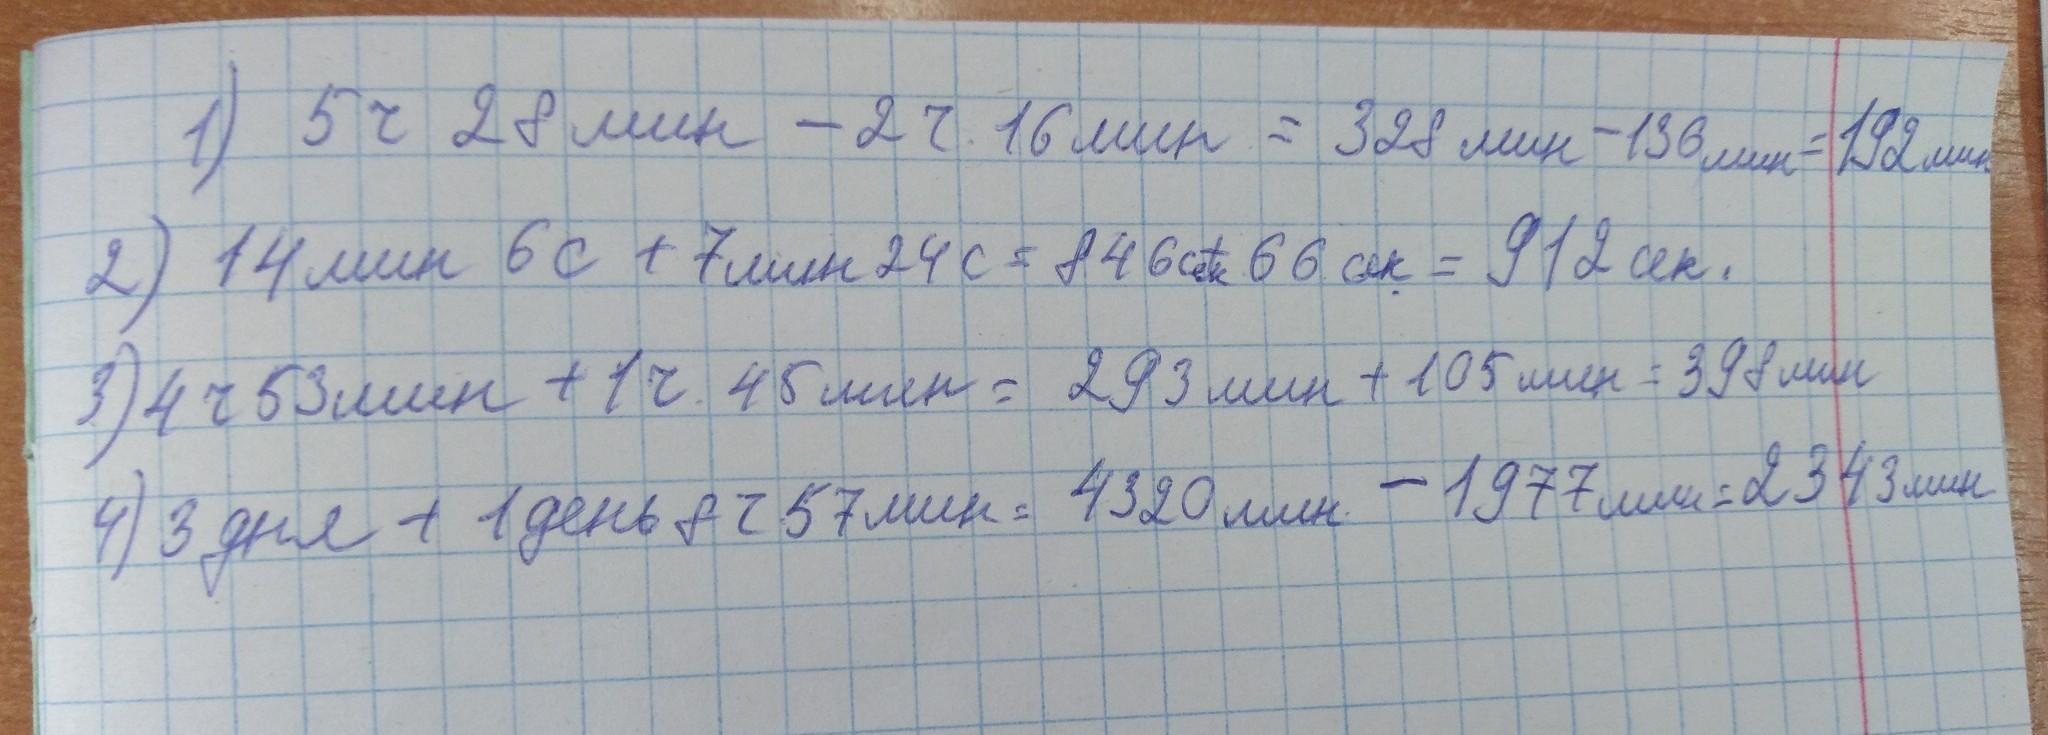 1) 5 ч 28 мин - 2 ч. 16 мин = 328 мин - 136 мин = 192 мин
2) 14 мин 6 с + 7 мин 24 с = 846 сек + 66 сек = 912 сек.
3) 4 ч 53 мин + 1 ч. 45 мин = 293 мин + 105 мин = 398 мин
4) 3 дня + 1 день 8 ч 57 мин = 4320 мин. - 1977 мин = 2343 мин